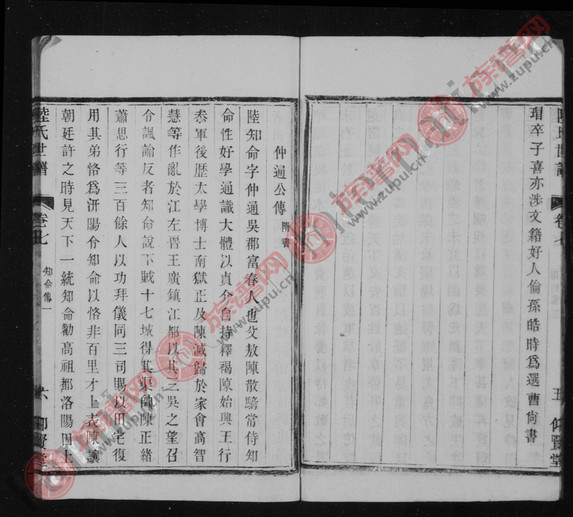 瑁卒子喜亦涉文籍好人倫孫皓時爲選曹尚書
陸氏世譜 卷七 五 仰賢堂
仲通公傳 附贊
陸知命字仲通吳郡富春人也父敖陳散騎常侍知
命性好學通識大體以貞介自持釋褐陳始興王行
參軍後歷太學博士南獄正及陳滅歸於家會高智
慧等作亂於江左晋王廣鎮江都以其三吳之望召
令諷諭反者知命說下賊十七城得其渠帥陳正緒
蕭思行等三百餘人以功拜儀同三司賜以田宅復
用其弟恪爲汧陽介知命以恪非百里才上表陳讓
朝廷許之時見天下一統知命勸高祖都洛陽因上
陸氏世譜 卷七 知命傳一 六 仰賢堂
族譜网
www.zupu.cn